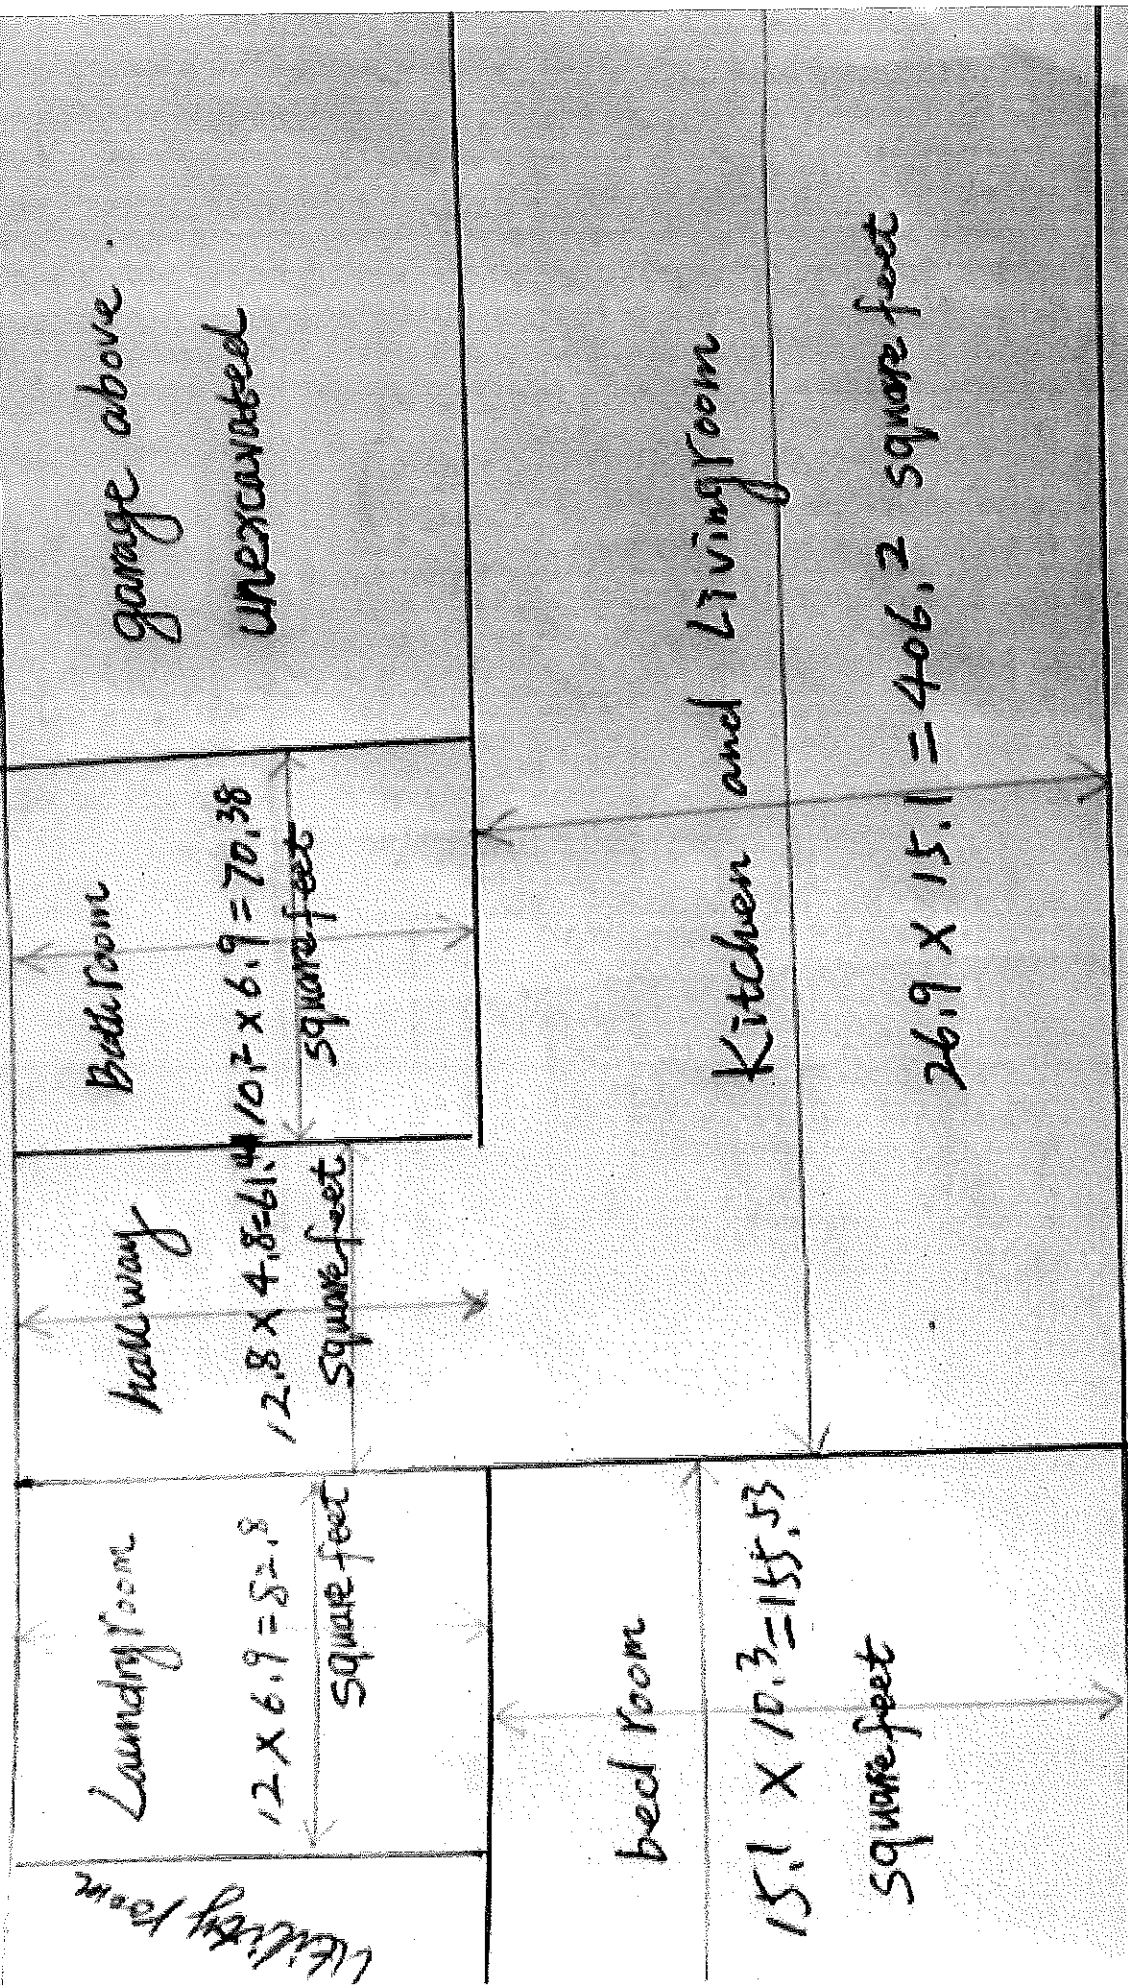 utility room
Laundry room
12 x 6.9 = 82.8
square feet
hallway
12.8 x 4.8 = 61.4
square feet
Bathroom
10.2 x 6.9 = 70.38
square feet
garage above.
unexcavated
bed room
15.1 x 10.3 = 155.53
square feet
Kitchen and Livingroom
26.9 x 15.1 = 406.2 square feet